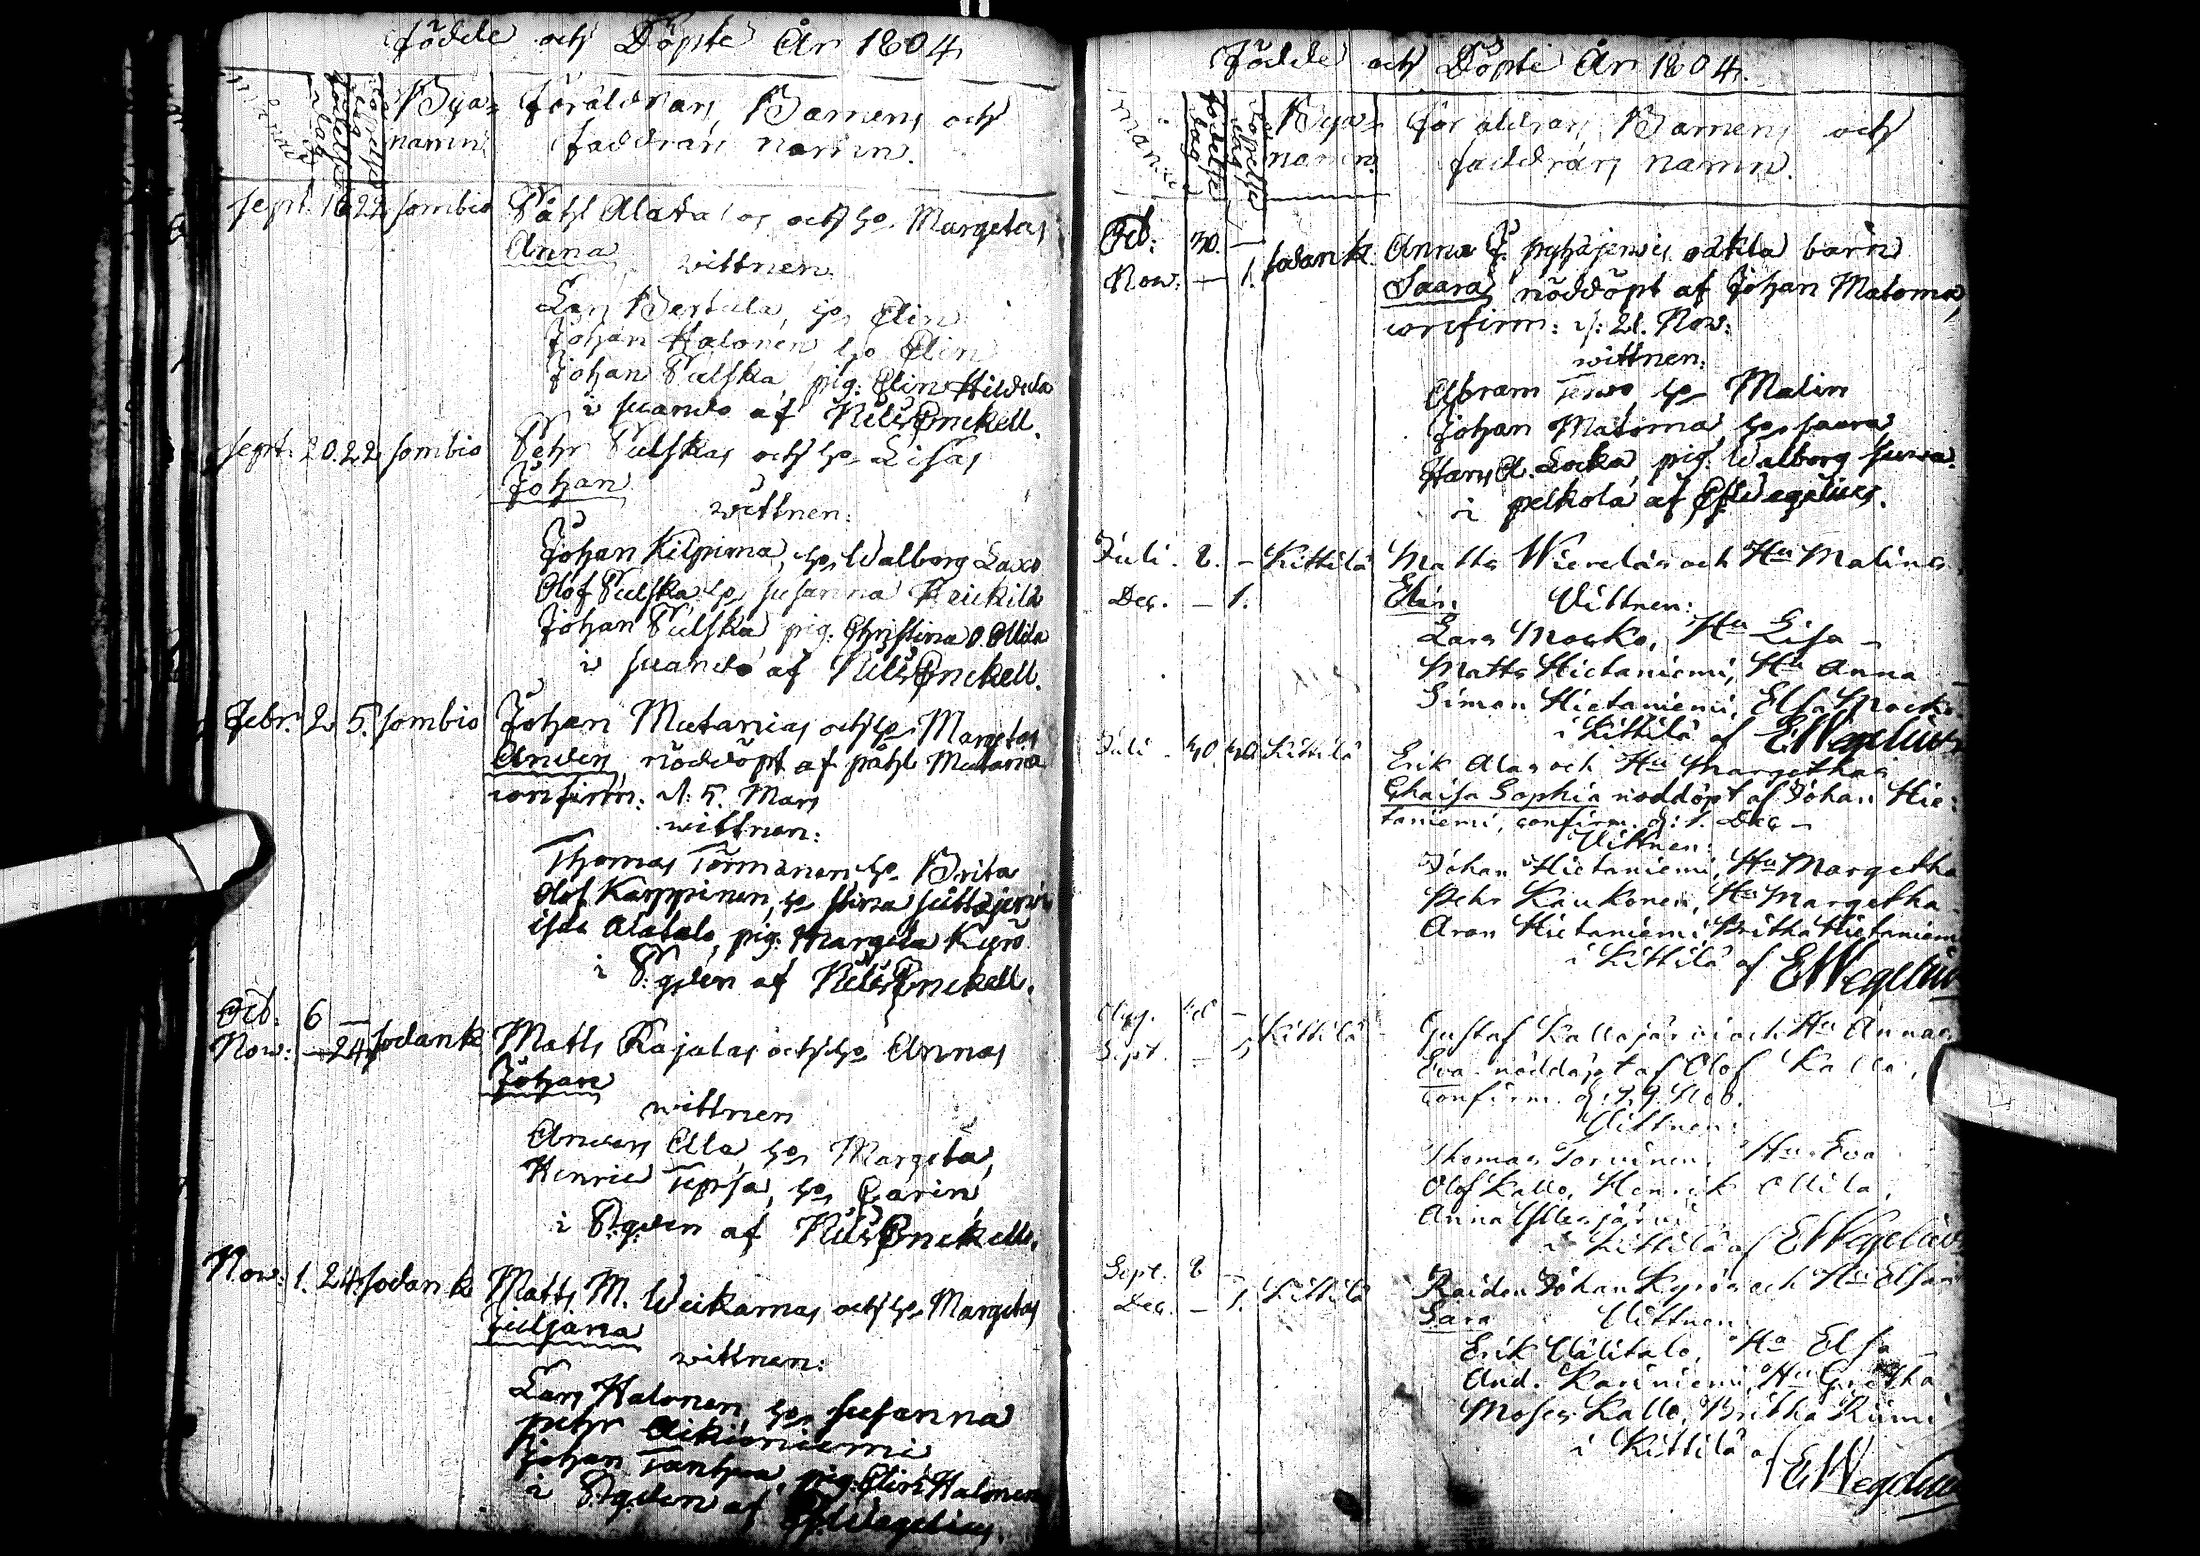 Födde och Döpte År 1804
månad
födelse dag
döpelse dag
Bya= Föräldrars, Barnens och
namn. faddrars namn.
Sept. 16 22 Sombio Påhl Alatalos och h:o Margetas
Anna
wittnen.
Lars Bertula, h:o Elin
Johan Halonen h:o Elin
Johan Pulska, pig: Elin Hildula
i Suando af Nils Enckell.
Sept. 20. 22 Sombio Pehr Pulskas och h:o Lisas
Johan
wittnen:
Johan Kilpima, h:o Walborg Laxo
Olof Pulska h:o Susanna Keukilä
Johan Pulska pig: Christina O. Ollila
i Suando af Nils Enckell.
Febr. 2 5. Sombio Johan Mutanias och h:o Margetas
Anders, nöddöpt af påhl Mutania
confirm: d: 5. Mars
wittnen:
Thomas Törmänen h:o Brita
Olof Karppinen, h:o Stina Suttajervi
isac Alatalo, pig: Margeta Kyrö
i P:gden af Nils Enckell.
Oct. 6 —
Now: — 24 Sodank Matts Kajalas och h:o Annas
Johan
wittnen
Anders Alla, h:o Margeta,
Henric Tepsa, h:o Carin,
i P:gden af Nils Enckell.
Now: 1. 24. Sodank Matts M. Weikamas och h:o Margetas
Juljana
wittnen:
Lars Halonen h:o Susanna
pehr Aikioniemi
Johan Tanhua, pig: Elin Halonen
i P:gden af E Wegelius.
Födde och Döpte År 1804.
månad
födelse dag
döpelse dag
Bya= Föräldrars, Barnens och
namn. faddrars namn.
Oct: 30. — Sodank Anna J. pyhäjervis oäkta barn
Now: — 1. Saara, nöddöpt af Johan Matoma,
confirm: d: 21. Now:
wittnen:
Abram Terwo, h:o Malin
Johan Matoma, h:o Saara
Hans A. Locka, pig: Walborg Surva.
i pelkola af E Wegelius.
Juli. 8. — Kittilä Matts Wierelas och Hu Malins
Dec. — 1. Elin. Vittnen:
Lars Mocko, Hu Lisa —
Matts Hietaniemi, Hu Anna —
Simon Hietaniemi, Elsa Mocko.
i Kittilä af E Wegelius
Juli. 30 30 Kittilä Erik Alas och Hu Margethas
Chaisa Sophia nöddöpt af Johan Hie:
taniemi, confirm. d: 1. Dec —
Vittnen:
Johan Hietaniemi, Hu Margetha
Pehr Kaukonen, Hu Margetha
Aron Hietaniemi, Britha Hietaniemi
i Kittilä af E Wegelius
Aug. —
Sept. — Kittilä Gustaf Kallojärvi och Hu Annas
Eva. nöddöpt af Olof Kallo,
confirm. d: 29. Nov.
Vittnen:
Thomas Torvinen, Hu Eva
Olof Kallo, Henrik Ollila,
Anna Ylläsjärvi
i Kittilä af E Wegelius
Sept. 8 —
Dec. — 1. Kittilä Raiden Johan Kyrös och Hu Elsas
Sara Vittnen
Erik Välitalo, Hu Elsa —
And. Kariniemi, Hu Gretha
Moses Kallo, Britha Riimi
i Kittilä af
E Wegelius